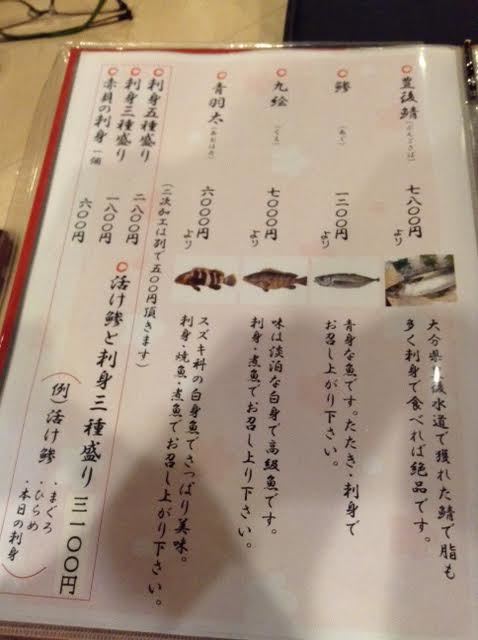 豊後鯖(ぶんごさば)
七八〇〇円より
大分県豊後水道で獲れた鯖で脂も
多く刺身で食べれば絶品です。
鯵(あじ)
一三〇〇円より
青身な魚です。たたき・刺身で
お召し上がり下さい。
九絵(くえ)
七〇〇〇円より
味は淡泊な白身で高級魚です。
刺身・煮魚でお召し上り下さい。
青羽太(あおはた)
六〇〇〇円より
スズキ科の白身魚でさっぱり美味。
刺身・焼魚・煮魚でお召し上がり下さい。
(二次加工は別で五〇〇円頂きます)
刺身五種盛り 二八〇〇円
刺身三種盛り 一八〇〇円
赤貝の刺身 一個 六〇〇円
活け鯵と刺身三種盛り 三一〇〇円
(例)活け鯵
・まぐろ
・ひらめ
・本日の刺身